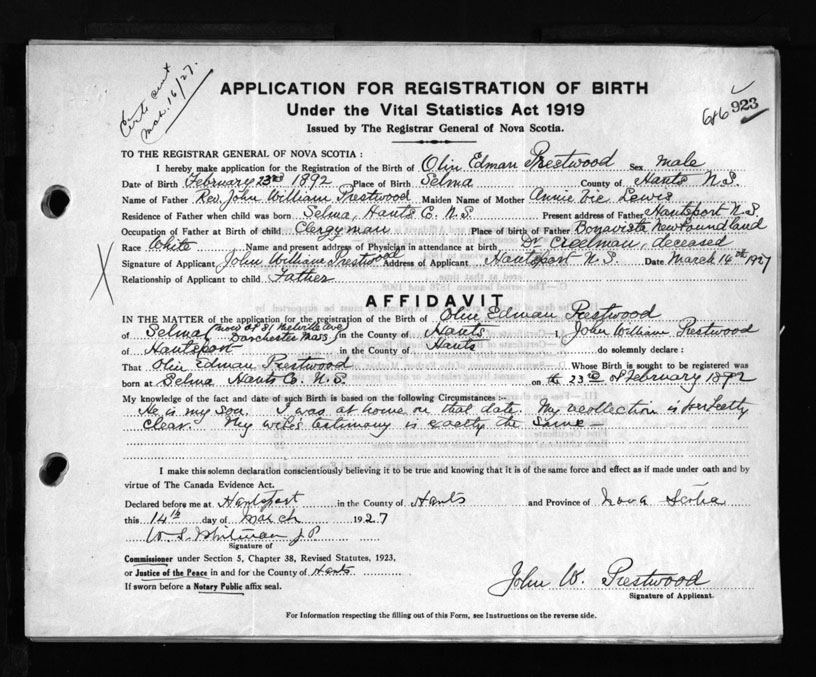 Certs sent
Mar. 16/27.
APPLICATION FOR REGISTRATION OF BIRTH
Under the Vital Statistics Act 1919
Issued by The Registrar General of Nova Scotia.
616 923
TO THE REGISTRAR GENERAL OF NOVA SCOTIA :
I hereby make application for the Registration of the Birth of Olin Edman Prestwood Sex male
Date of Birth February 23rd 1892 Place of Birth Selma County of Hants N.S.
Name of Father Rev. John William Prestwood Maiden Name of Mother Annie Vie Lewis
Residence of Father when child was born Selma, Hants Co. N.S. Present address of Father Hantsport N.S
Occupation of Father at Birth of child Clergyman Place of birth of Father Bonavista Newfoundland
Race White Name and present address of Physician in attendance at birth Dr Creelman, deceased
Signature of Applicant John William Prestwood Address of Applicant Hantsport N.S. Date March 14th 1927
Relationship of Applicant to child Father
AFFIDAVIT
IN THE MATTER of the application for the registration of the Birth of Olin Edman Prestwood
of Selma (now of 31 Melville Ave Dorchester Mass) in the County of Hants I, John William Prestwood
of Hantsport in the County of Hants do solemnly declare :
That Olin Edman Prestwood Whose Birth is sought to be registered was
born at Selma Hants Co. N.S. on the 23rd of February 1892
My knowledge of the fact and date of such Birth is based on the following Circumstances :-
He is my son. I was at home on that date. My recollection is perfectly
clear. My wife's testimony is exactly the same —
I make this solemn declaration conscientiously believing it to be true and knowing that it is of the same force and effect as if made under oath and by
virtue of The Canada Evidence Act.
Declared before me at Hantsport in the County of Hants and Province of Nova Scotia
this 14th day of March 1927
W. S. Whitman J.P.
Signature of
Commissioner under Section 5, Chapter 38, Revised Statutes, 1923,
or Justice of the Peace in and for the County of Hants
If sworn before a Notary Public affix seal.
John W. Prestwood
Signature of Applicant.
For Information respecting the filling out of this Form, see Instructions on the reverse side.